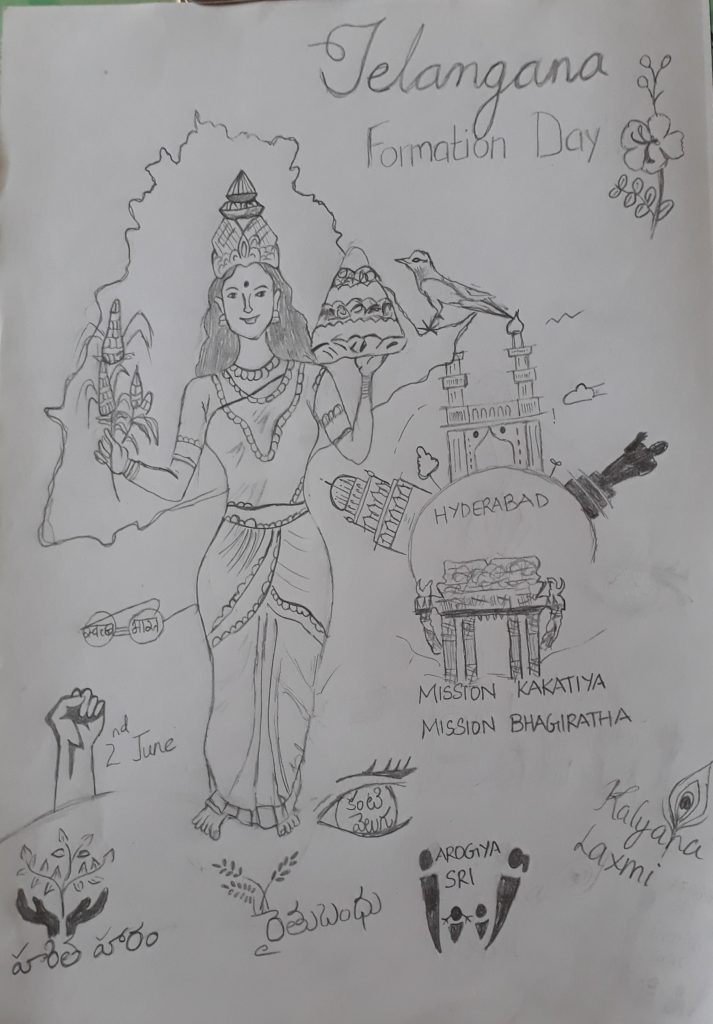 Telangana
Formation Day
HYDERABAD
स्वच्छ भारत
MISSION KAKATIYA
MISSION BHAGIRATHA
2nd June
కంటి
వెలుగు
Kalyana
Laxmi
AROGIYA
SRI
రైతుబంధు
హరిత హారం